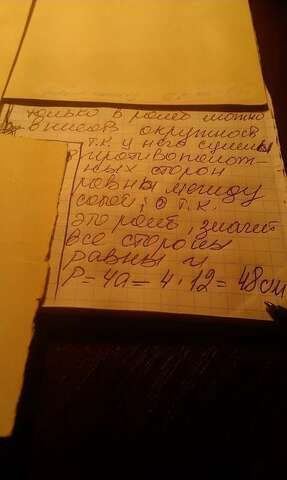 только в ромб можно
вписать окружность
т.к. у него суммы
противополож-
ных сторон
равны между
собой, а т.к.
это ромб, значит
все стороны
равны и
P = 4a = 4 · 12 = 48 см